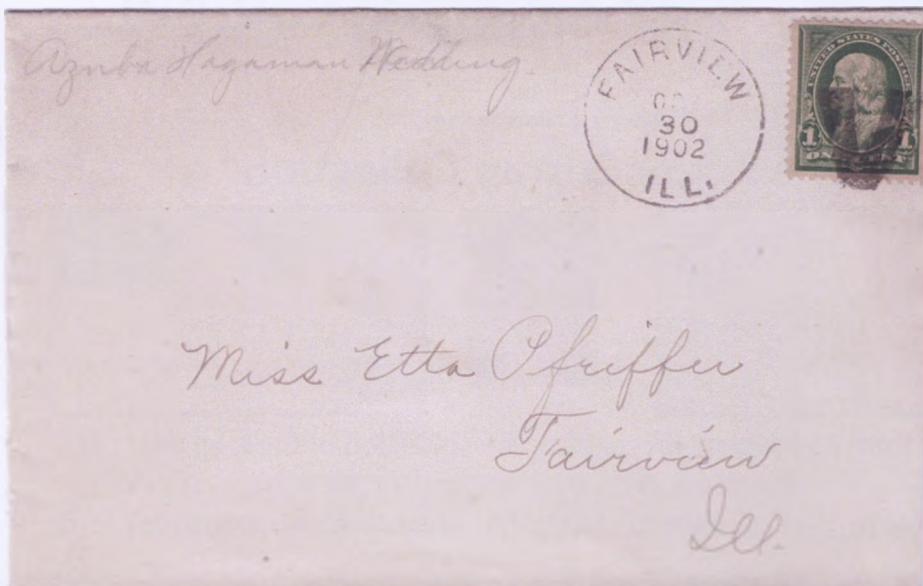 Hagaman Wedding.
FAIRVIEW
30
1902
ILL.
UNITED STATES POSTAGE
1 1
ONE
Miss Etta Pfeiffer
Fairview
Ill.